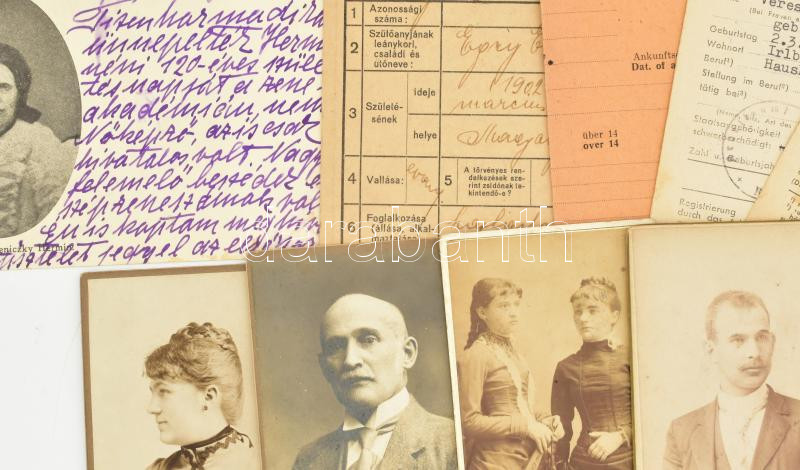 Tizenharmadikán
ünnepelték Hermin
néni 120-éves szüle
tés napját a zene-
akadémián nem
Nőképző, az is csak
hivatalos volt. Nagy
felemelő beszédek
szép zeneszámok vol
Én is kaptam meghívó
tisztelet jegyel az
eniczky Hermin
1 Azonossági
száma:
2 Szülőanyjának
leánykori,
családi és
utóneve:
3 Születé-
sének
ideje
1902
március
helye
Magyar
4 Vallása:
evang
5 A törvényes ren-
delkezések sze-
rint zsidónak te-
kintendő-e?
6 Foglalkozása
(állása, alkal-
maztatása)
Ankunfts
Dat. of a
über 14
over 14
Veres
(Bei Frauen
geb
Geburtstag 2.3.
Wohnort Irlb
Beruf¹) Haus
Stellung im Beruf²)
tätig bei³)
Staatsangehörigkeit
schwerbeschädigt
Zahl u. Geburtsjahr
Registrierung
durch das
darabanth